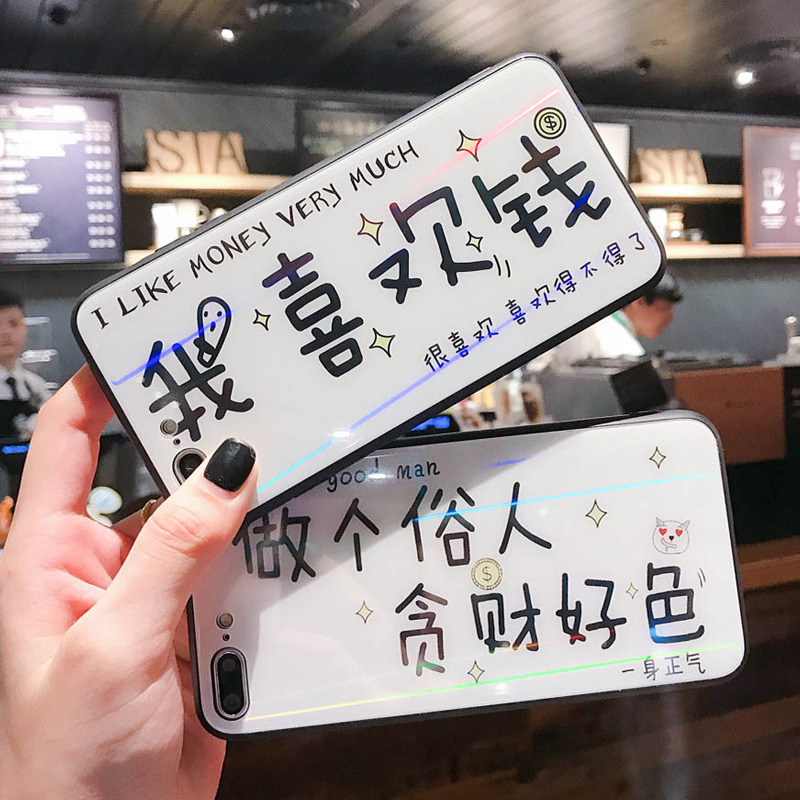 STA
I LIKE MONEY VERY MUCH
我喜欢钱
很喜欢 喜欢得不得了
good man
做个俗人
贪财好色
一身正气